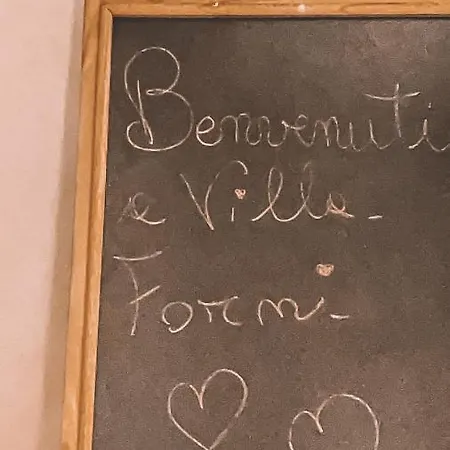 Benvenuti
a Villa
Forni